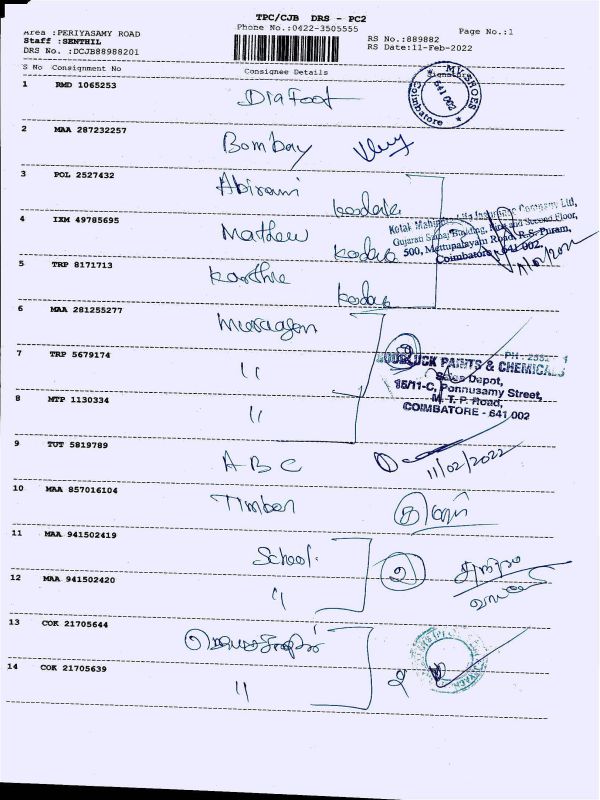 TPC/CJB DRS - PC2
Phone No.:0422-3505555
Page No.:1
Area :PERIYASAMY ROAD
Staff :SENTHIL
DRS No. :DCJB88988201
RS No.:889882
RS Date:11-Feb-2022
S No Consignment No Consignee Details
1 RMD 1065253 Dia Foot
SHOES
641 002
Coimbatore
2 MAA 287232257 Bombay
3 POL 2527432 Abirami kodak
4 IXM 49785695 Mathew kodak
Gujaran Samaj Building, First and Second Floor,
500, Mettupalayam Road, R.S. Puram,
Coimbatore - 641 002.
5 TRP 8171713 Karthic kodak
6 MAA 281255277 Murugan
7 TRP 5679174 "
GOODLUCK PAINTS & CHEMICALS
Sales Depot,
15/11-C, Ponnusamy Street,
M. T. P. Road,
COIMBATORE - 641 002
8 MTP 1130334 "
9 TUT 5819789 ABC
11/02/2022
10 MAA 857016104 Timber
11 MAA 941502419 School
2
12 MAA 941502420 "
13 COK 21705644
14 COK 21705639 "